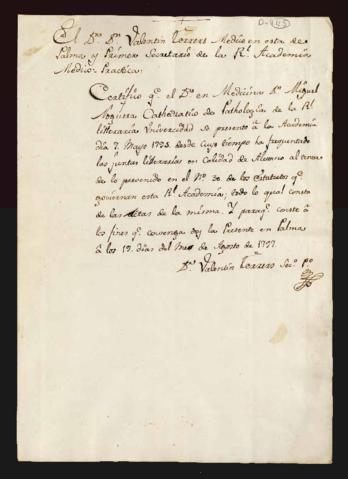 D-115
El Dr. Dn. Valentin Terrers Medico en esta de
Palma y Primer Secretario de la Rl. Academia
Medico-Practica:
Certifico qe. el Dr. en Medicina Dn. Miguel
Noguera Cathedratico de Pathologia de la Rl.
litteraria Vniversidad se presentò à la Academia
dia 7. Mayo 1795 desde cuyo tiempo ha frequentado
las juntas litterarias en calidad de Alumno al tenor
de lo prevenido en el No. 30. de los Estatutos qe.
goviernan esta Rl. Academia; todo lo qual consta
de las Actas de la misma. Y paraqe. conste à
los fines qe. convenga doy la Presente en Palma
à los 19. dias del Mes de Agosto de 1797.
Dr. Valentin Terrers Seco. po